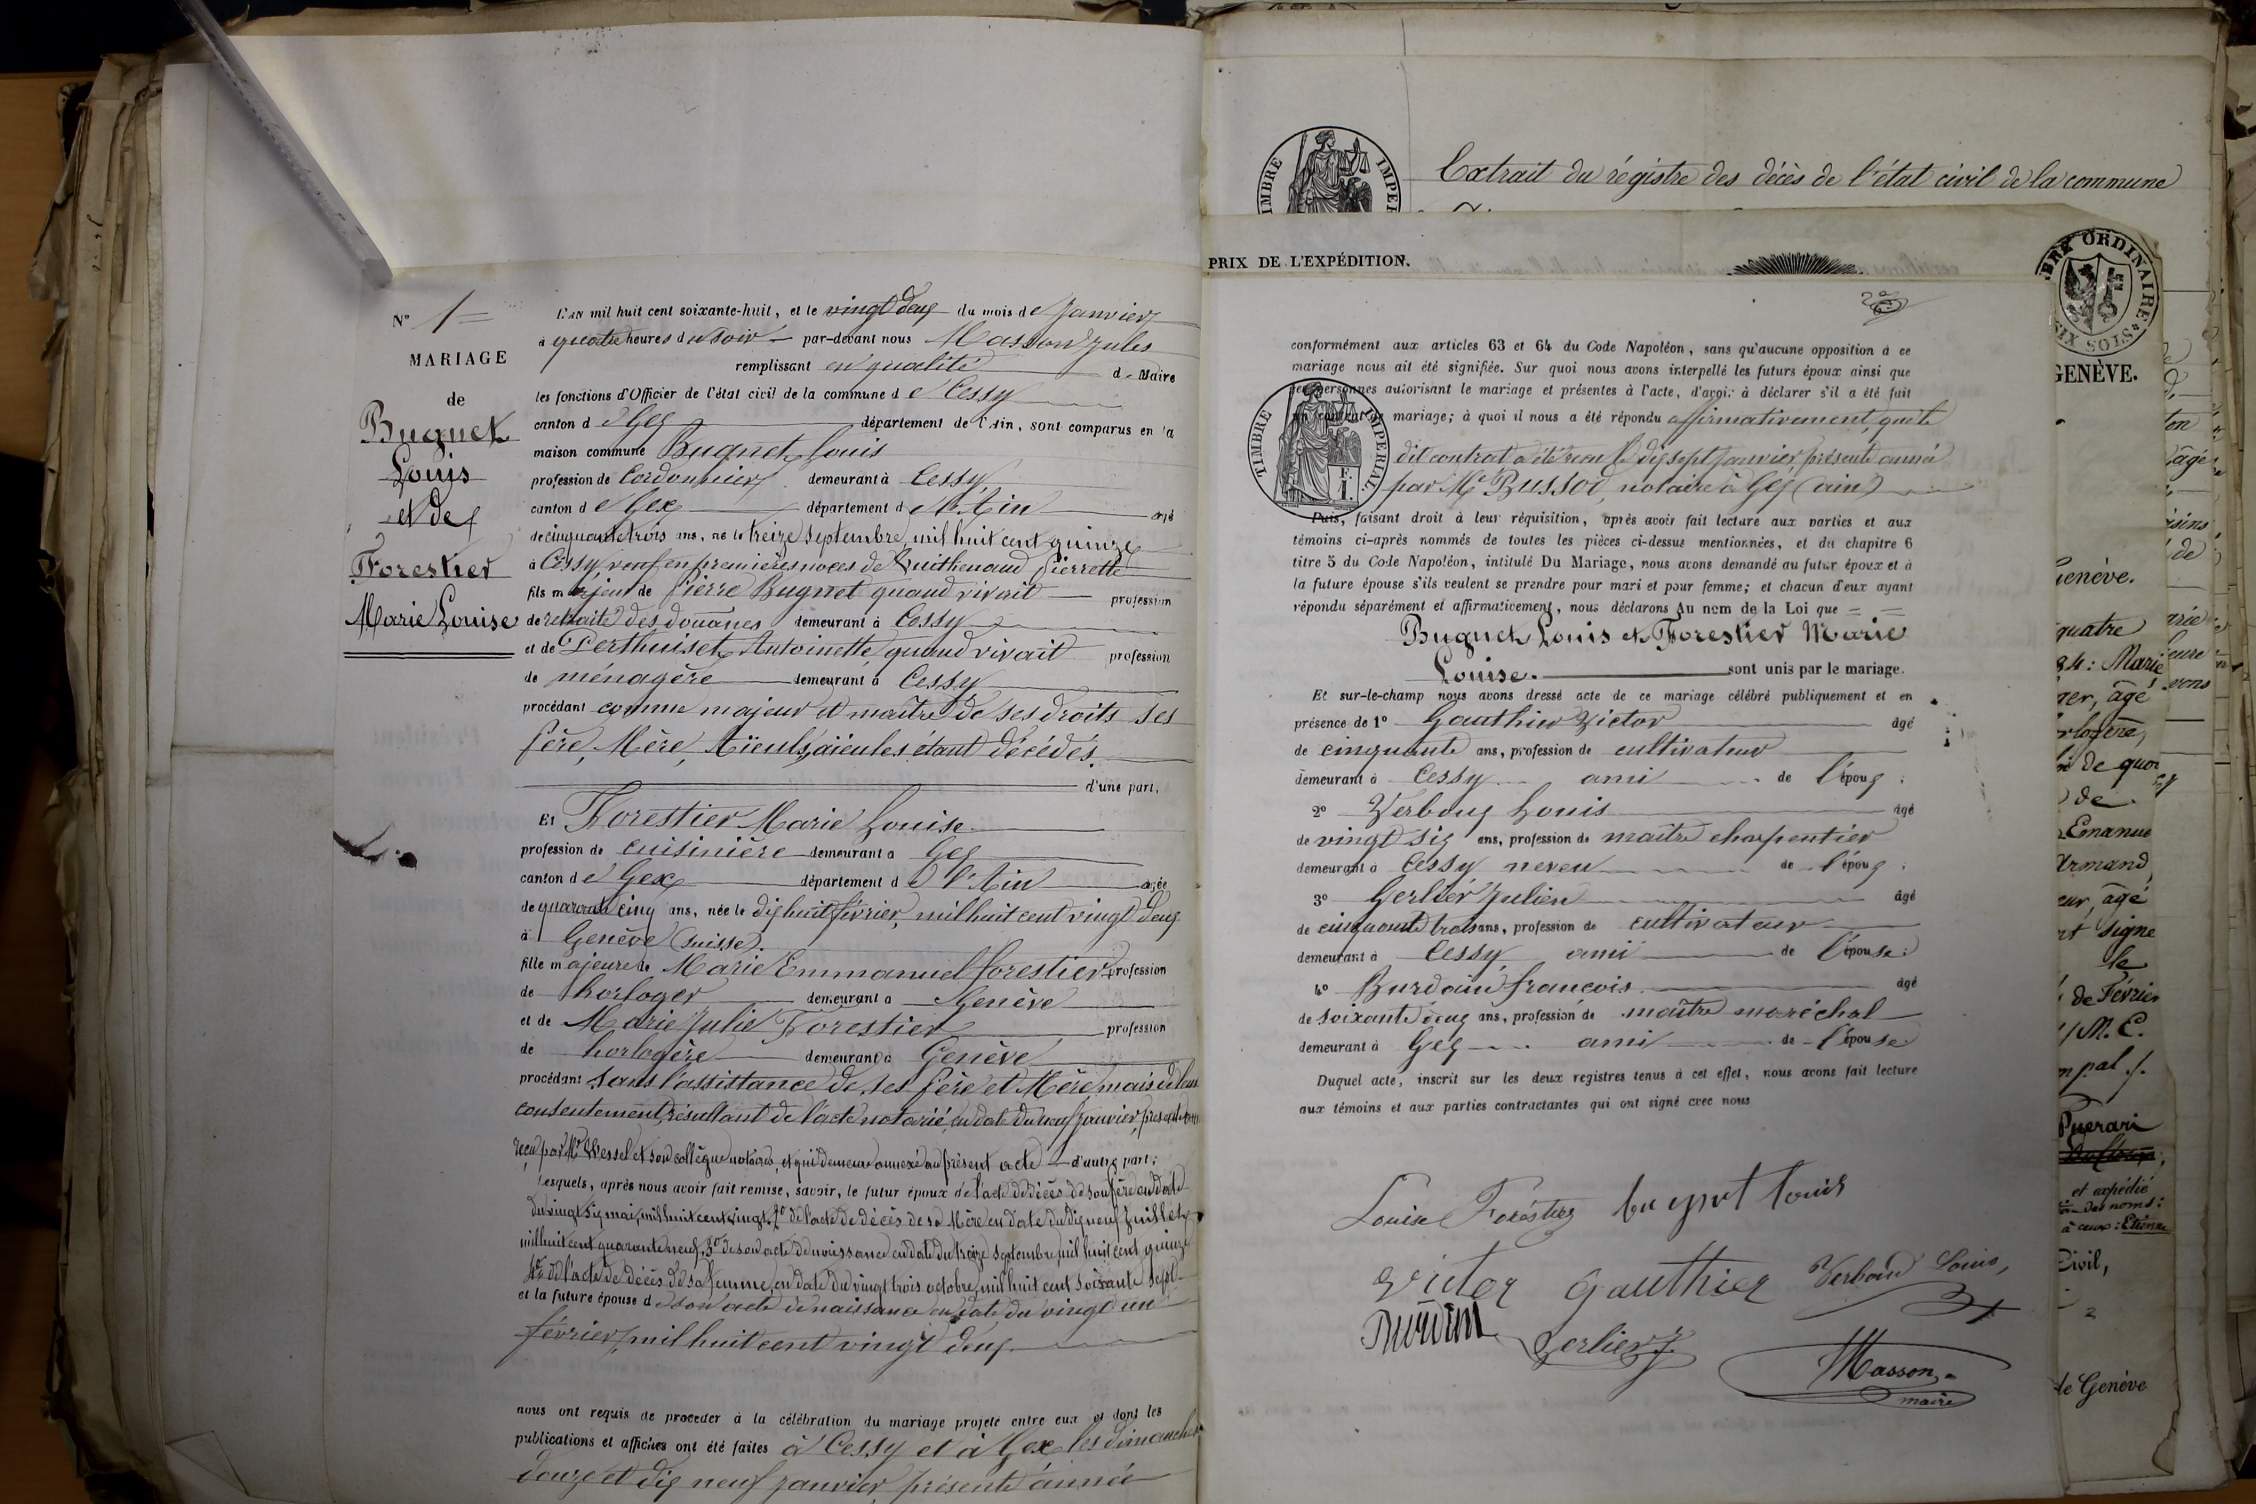 N° 1
MARIAGE
de
Bugnet
Louis
et de
Forestier
Marie Louise
L'AN mil huit cent soixante-huit, et le vingt deux du mois de Janvier
à quatre heures du soir par-devant nous Masson Jules
remplissant en qualité de Maire
les fonctions d'Officier de l'état civil de la commune de Cessy
canton de Gex département de l'Ain, sont comparus en la
maison commune Bugnet Louis
profession de Cordonnier demeurant à Cessy
canton de Gex département de l'Ain âgé
de cinquante trois ans, né le treize Septembre, mil huit cent quinze
à Cessy, veuf en premières noces de Pierrette
fils majeur de Pierre Bugnet quand vivait profession
de retraité des douanes demeurant à Cessy
et de Perthuiset Antoinette, quand vivait profession
de ménagère demeurant à Cessy
procédant comme majeur et maître de ses droits ses
Père, Mère, Aïeuls, aïeules étant décédés.
d'une part,
Et Forestier Marie Louise
profession de cuisinière demeurant à Gex
canton de Gex département de l'Ain âgée
de quarante cinq ans, née le dix huit février, mil huit cent vingt deux
à Genève (Suisse).
fille majeure de Marie Emmanuel Forestier profession
de horloger demeurant à Genève
et de Marie Julie Forestier profession
de horlogère demeurant à Genève
procédant sans l'assistance de ses Père et Mère, mais de leur
consentement, résultant de l'acte notarié, en date du neuf Janvier, présente année
reçu par Me et son collègue notaires, et qui demeure annexé au présent acte d'autre part;
Lesquels, après nous avoir fait remise, savoir, le futur époux de l'acte de décès de son père en date
du vingt six mai, mil huit cent vingt. 2° de l'acte de décès de sa Mère en date du dix neuf Juillet
mil huit cent quarante neuf, 3° de son acte de naissance en date du treize septembre, mil huit cent quinze
4° de l'acte de décès de sa femme, en date du vingt trois octobre, mil huit cent soixante sept
et la future épouse de son acte de naissance en date du vingt un
février, mil huit cent vingt deux
nous ont requis de procéder à la célébration du mariage projeté entre eux et dont les
publications et affiches ont été faites à Cessy et à Gex les dimanches
douze et dix neuf janvier, présente année
TIMBRE IMPER
Extrait du régistre des décès de l'état civil de la commune
PRIX DE L'EXPÉDITION.
TIMBRE ORDINAIRE
SIX SOLS
conformément aux articles 63 et 64 du Code Napoléon, sans qu'aucune opposition à ce
mariage nous ait été signifiée. Sur quoi nous avons interpellé les futurs époux ainsi que
les personnes autorisant le mariage et présentes à l'acte, d'avoir à déclarer s'il a été fait
un contrat de mariage; à quoi il nous a été répondu affirmativement, que le
dit contrat a été reçu le dix sept janvier, présente année
par Me Bussod, notaire à Gex (ain)
TIMBRE IMPERIAL.
F. 1.
Puis, faisant droit à leur réquisition, après avoir fait lecture aux parties et aux
témoins ci-après nommés de toutes les pièces ci-dessus mentionnées, et du chapitre 6
titre 5 du Code Napoléon, intitulé Du Mariage, nous avons demandé au futur époux et à
la future épouse s'ils veulent se prendre pour mari et pour femme; et chacun d'eux ayant
répondu séparément et affirmativement, nous déclarons Au nom de la Loi que
Bugnet Louis et Forestier Marie
Louise. sont unis par le mariage.
Et sur-le-champ nous avons dressé acte de ce mariage célébré publiquement et en
présence de 1° Gauthier Victor âgé
de cinquante ans, profession de cultivateur
demeurant à Cessy ami de l'époux;
2° Verboux Louis âgé
de vingt six ans, profession de maître charpentier
demeurant à Cessy neveu de l'époux;
3° Gerlier Julien âgé
de cinquante trois ans, profession de cultivateur
demeurant à Cessy ami de l'épouse;
4° Burdain françois âgé
de soixante deux ans, profession de maître maréchal
demeurant à Gex ami de l'épouse
Duquel acte, inscrit sur les deux registres tenus à cet effet, nous avons fait lecture
aux témoins et aux parties contractantes qui ont signé avec nous
Louise Foréstier bugnet louis
Victor Gauthier Verboux Louis,
Burdin Gerlier J.
Masson
maire
GENÈVE.
Genève.
quatre
84: Marie
ger, âgé
orlogère,
de quoi
de
Emanue
Armand,
eur, âgé
signe
le
de Février
M. C.
pal
Puerari
et expédié
des noms:
à ceux: Etienne
Civil,
de Genève